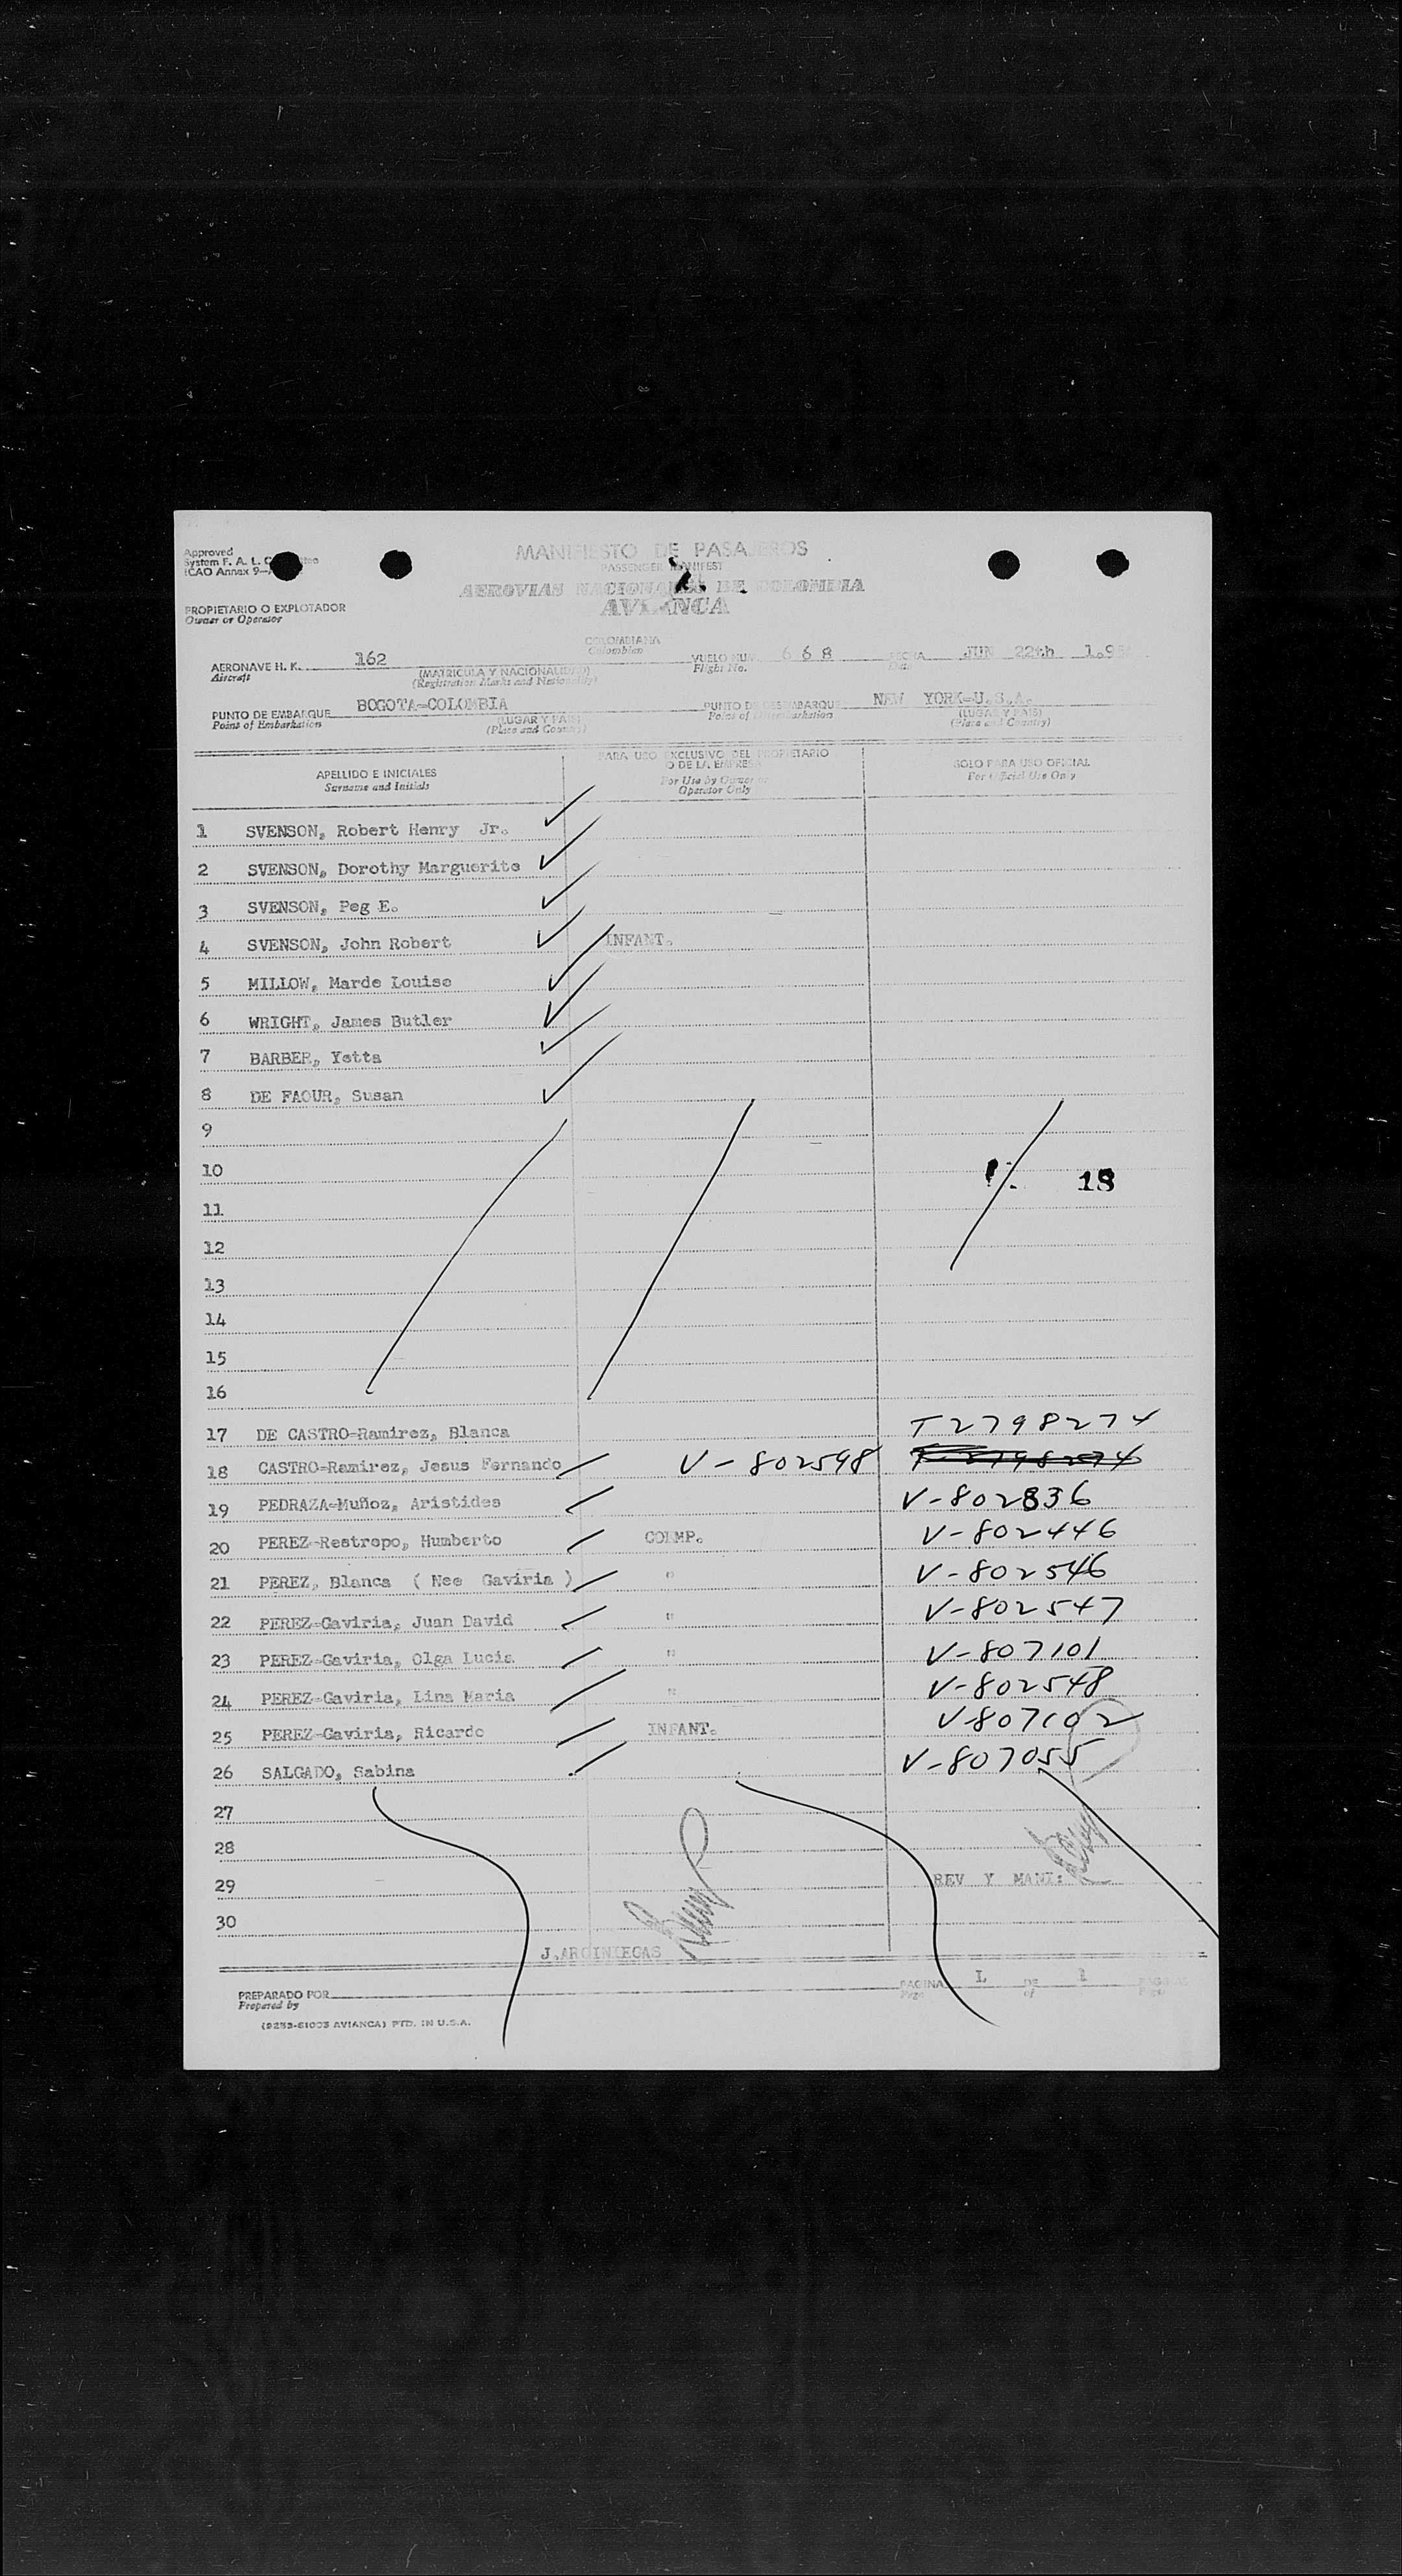 Approved
System F. A. L.
ICAO Annex 9
MANIFIESTO DE PASAJEROS
PASSENGER MANIFEST
AEROVIAS NACIONALES DE COLOMBIA
AVIANCA
PROPIETARIO O EXPLOTADOR
Owner or Operator
COLOMBIANA
Colombian
AERONAVE H. K. 162 VUELO NUM. 668 FECHA JUN 22th
Aircraft (MATRICULA Y NACIONALIDAD) Flight No. Date
(Registration Marks and Nationality)
PUNTO DE EMBARQUE BOGOTA=COLOMBIA PUNTO DE DESEMBARQUE NEW YORK=U.S.A.
Point of Embarkation (LUGAR Y PAIS) Point of Disembarkation (LUGAR Y PAIS)
(Place and Country) (Place and Country)
APELLIDO E INICIALES
Surname and Initials
PARA USO EXCLUSIVO DEL PROPIETARIO
O DE LA EMPRESA
For Use by Owner or
Operator Only
SOLO PARA USO OFICIAL
For Official Use Only
1 SVENSON, Robert Henry Jr.
2 SVENSON, Dorothy Marguerite
3 SVENSON, Peg E.
4 SVENSON, John Robert INFANT.
5 MILLOW, Marde Louise
6 WRIGHT, James Butler
7 BARBER, Yetta
8 DE FAOUR, Susan
9
10 18
11
12
13
14
15
16
17 DE CASTRO=Ramirez, Blanca T2798274
18 CASTRO=Ramirez, Jesus Fernando V-802598
19 PEDRAZA=Muñoz, Aristides V-802836
20 PEREZ=Restrepo, Humberto COLMP. V-802446
21 PEREZ, Blanca ( Nee Gaviria ) " V-802546
22 PEREZ=Gaviria, Juan David " V-802547
23 PEREZ=Gaviria, Olga Lucia " V-807101
24 PEREZ=Gaviria, Lina Maria " V-802548
25 PEREZ=Gaviria, Ricardo INFANT. V-807102
26 SALGADO, Sabina V-807055
27
28
29 REV Y MANI:
30
J.ARCINIEGAS
PREPARADO POR PAGINA 1 DE 1 PAGINAS
Prepared by Page of Pages
(9253-61003 AVIANCA) PTD. IN U.S.A.